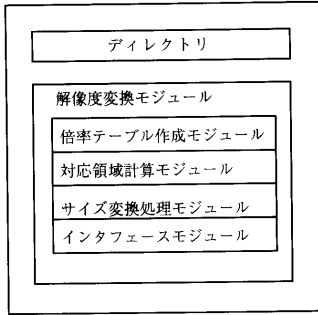 ディレクトリ
解像度変換モジュール
倍率テーブル作成モジュール
対応領域計算モジュール
サイズ変換処理モジュール
インタフェースモジュール